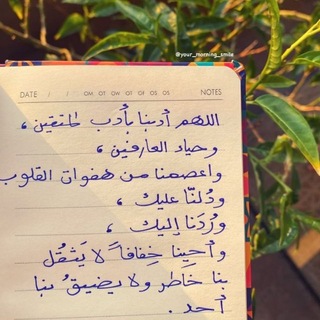 @your_morning_smile
DATE / / OM OT OW OT OF OS OS NOTES
اللهم أدبنا بأدب المتقين ،
وحياد العارفين ،
واعصمنا من هفوات القلوب
ودُلنّا عليك ،
ورُدَنا إليك ،
وأحينا خِفافاً لا يَثقُل
بنا خاطر ولا يضيقُ بنا
أحد .